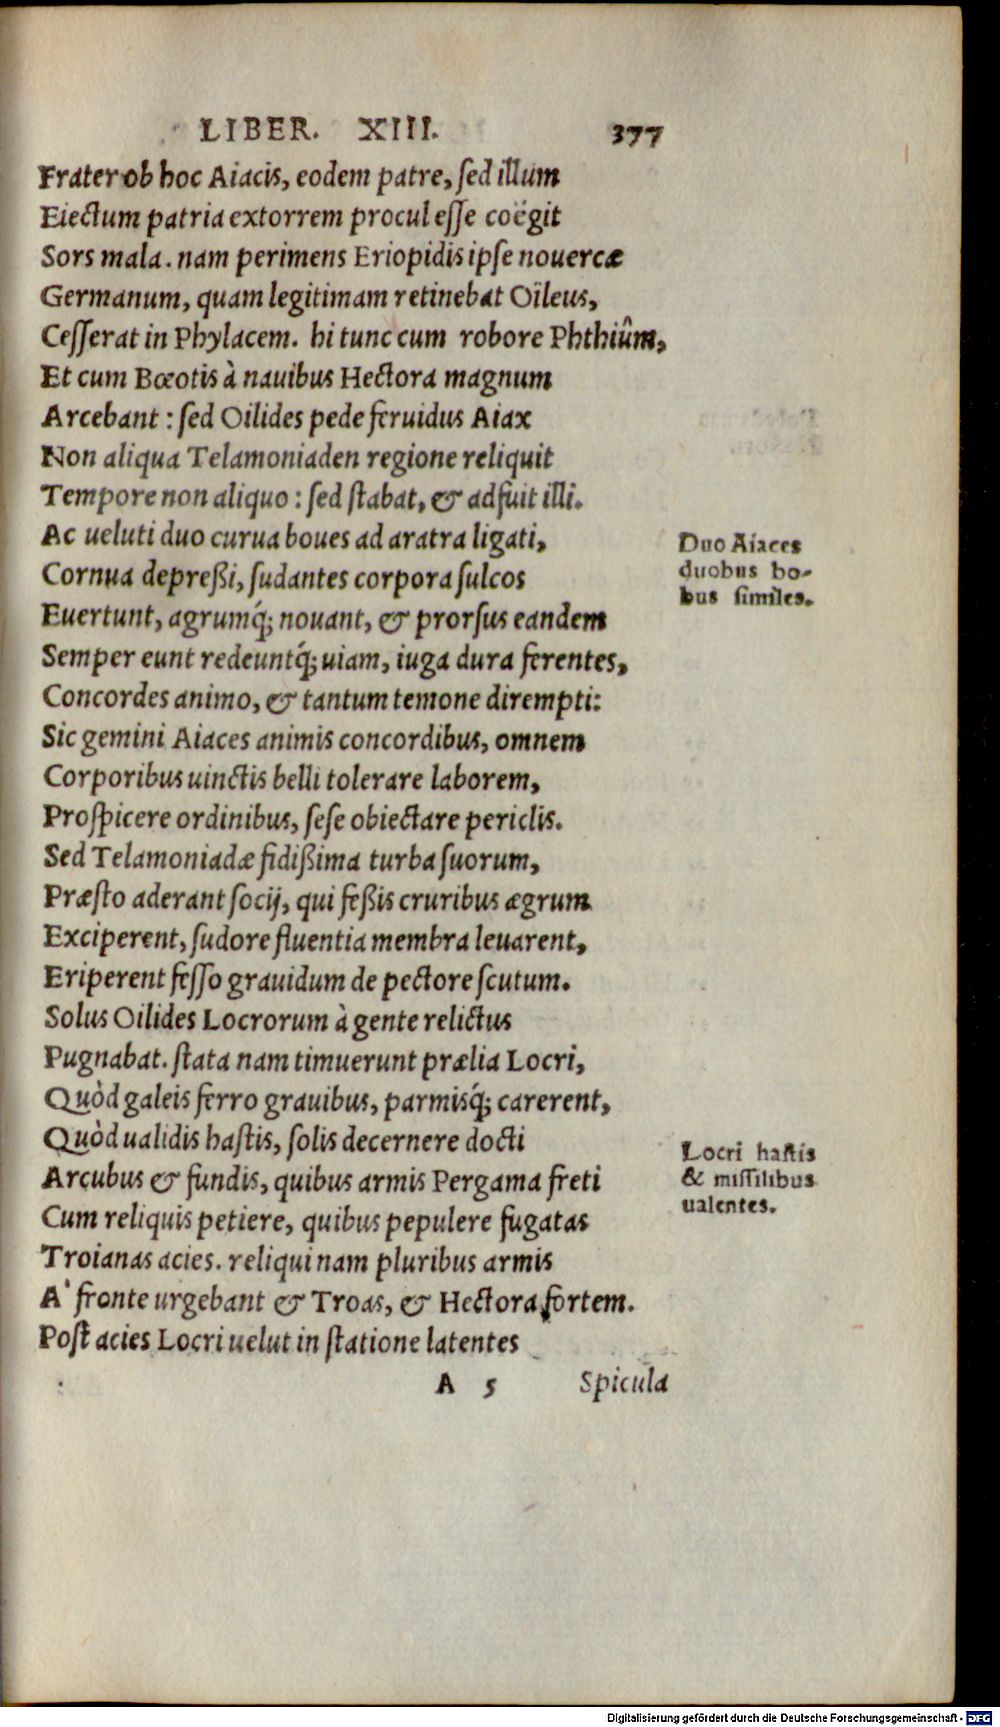 LIBER. XIII. 377
Frater ob hoc Aiacis, eodem patre, sed illum
Eiectum patria extorrem procul esse coëgit
Sors mala. nam perimens Eriopidis ipse nouercæ
Germanum, quam legitimam retinebat Oïleus,
Cesserat in Phylacem. hi tunc cum robore Phthiûm,
Et cum Bœotis à nauibus Hectora magnum
Arcebant : sed Oilides pede feruidus Aiax
Non aliqua Telamoniaden regione reliquit
Tempore non aliquo : sed stabat, & adfuit illi.
Ac ueluti duo curua boues ad aratra ligati,
Cornua depreßi, sudantes corpora sulcos
Euertunt, agrumq́; nouant, & prorsus eandem
Semper eunt redeuntq́; uiam, iuga dura ferentes,
Concordes animo, & tantum temone dirempti:
Sic gemini Aiaces animis concordibus, omnem
Corporibus uinctis belli tolerare laborem,
Prospicere ordinibus, sese obiectare periclis.
Sed Telamoniadæ fidißima turba suorum,
Præsto aderant socij, qui feßis cruribus ægrum
Exciperent, sudore fluentia membra leuarent,
Eriperent fesso grauidum de pectore scutum.
Solus Oilides Locrorum à gente relictus
Pugnabat. stata nam timuerunt prælia Locri,
Quòd galeis ferro grauibus, parmisq́; carerent,
Quòd ualidis hastis, solis decernere docti
Arcubus & fundis, quibus armis Pergama freti
Cum reliquis petiere, quibus pepulere fugatas
Troianas acies. reliqui nam pluribus armis
A' fronte urgebant & Troas, & Hectora fortem.
Post acies Locri uelut in statione latentes
A 5 Spicula
Duo Aiaces
duobus bo-
bus similes.
Locri hastis
& missilibus
ualentes.
Digitalisierung gefördert durch die Deutsche Forschungsgemeinschaft - DFG